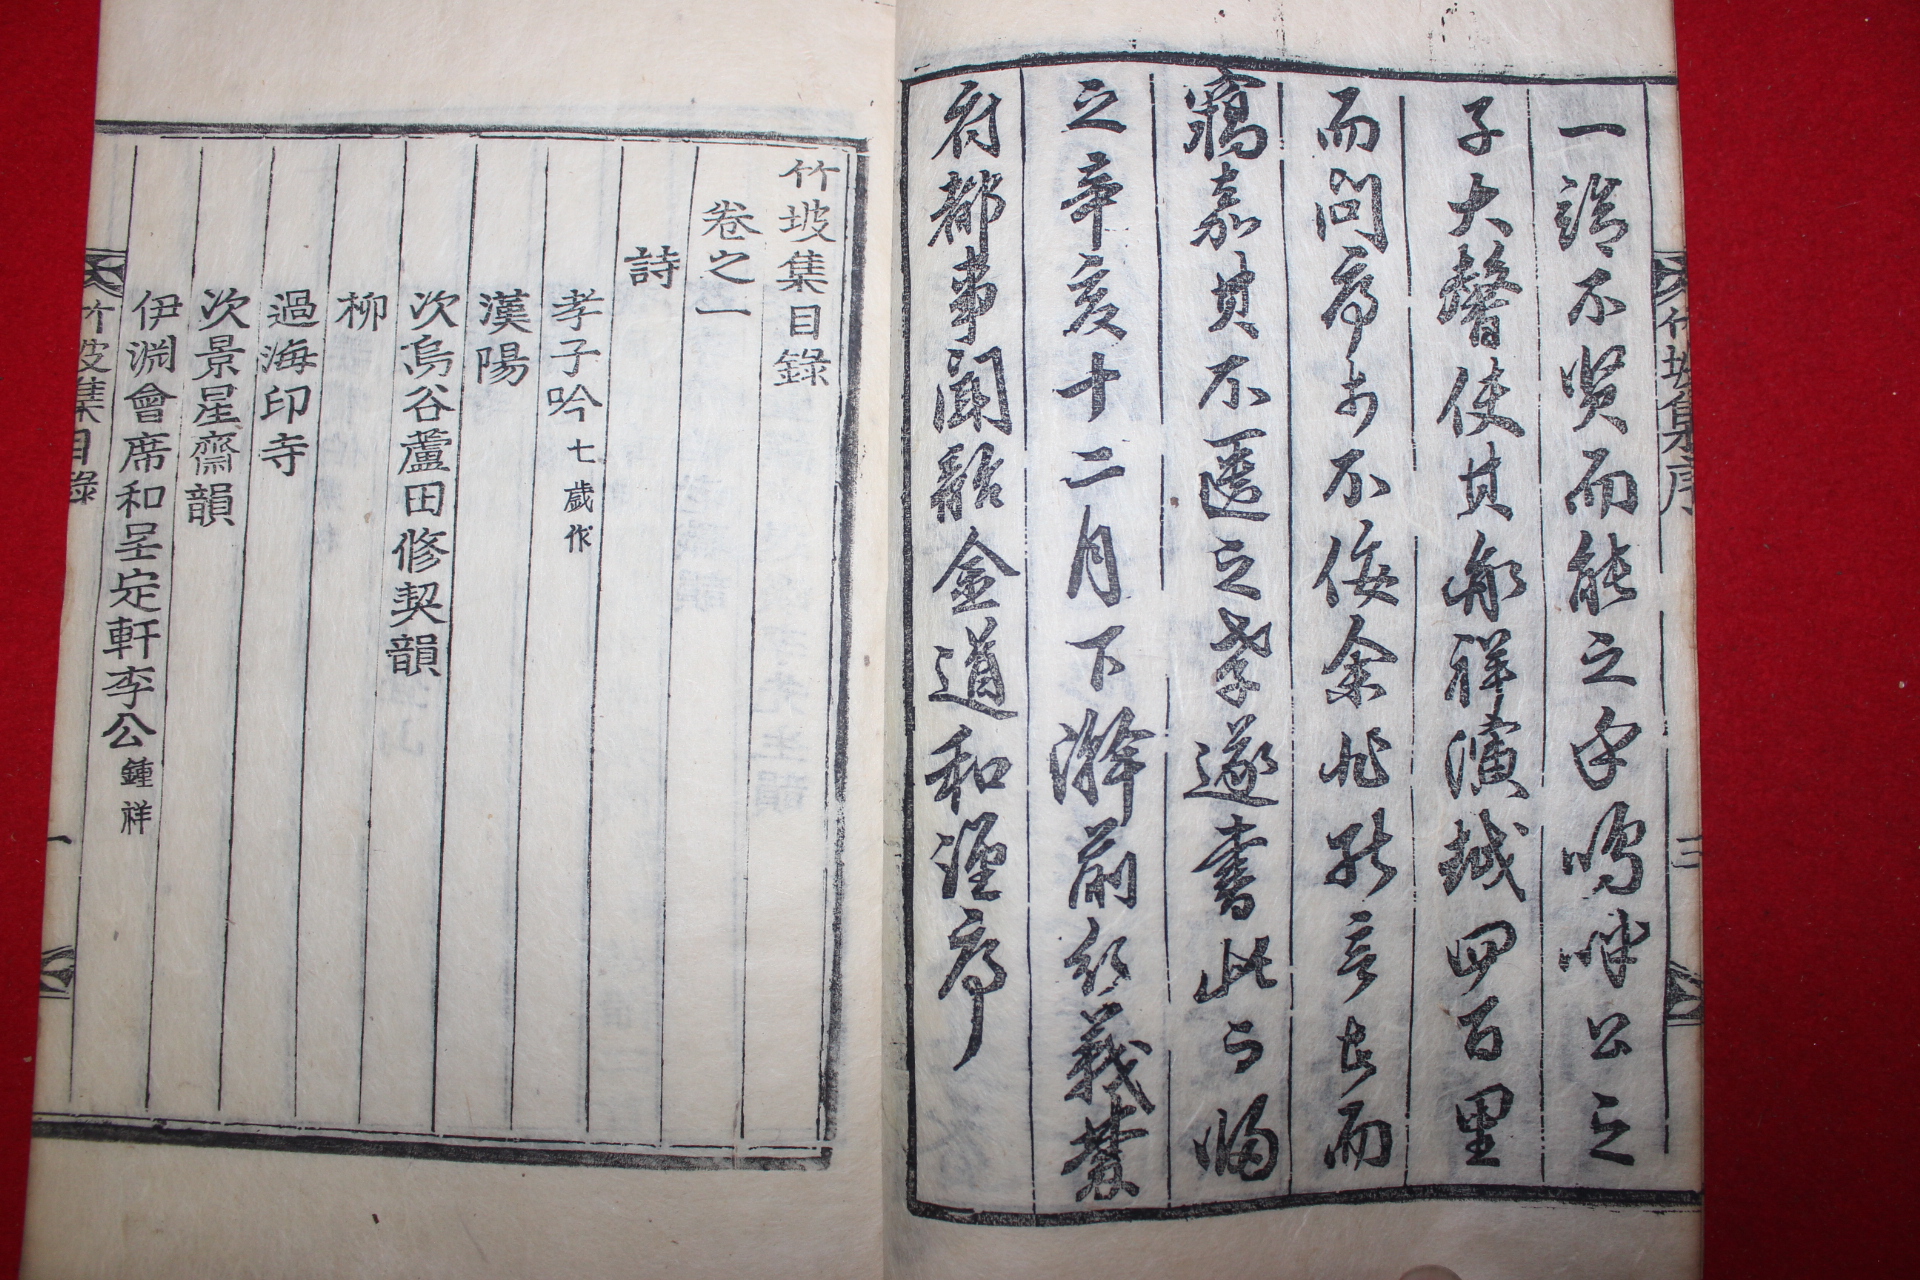 竹坡集序
三
一諾不賢而能之乎嗚呼公之
子大馨使其永祥演域四百里
而問序于不佞余非能言者而
竊嘉其不匱之孝遂書此而歸
之辛亥十二月下澣前行義禁
府都事聞韶金道和謹序
竹坡集目錄
卷之一
詩
孝子吟七歲作
漢陽
次烏谷蘆田修契韻
柳
過海印寺
次景星齋韻
伊淵會席和呈定軒李公鍾祥
竹坡集目錄
一